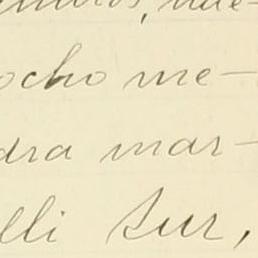 ocho me-
dra mar-
lli Sur,